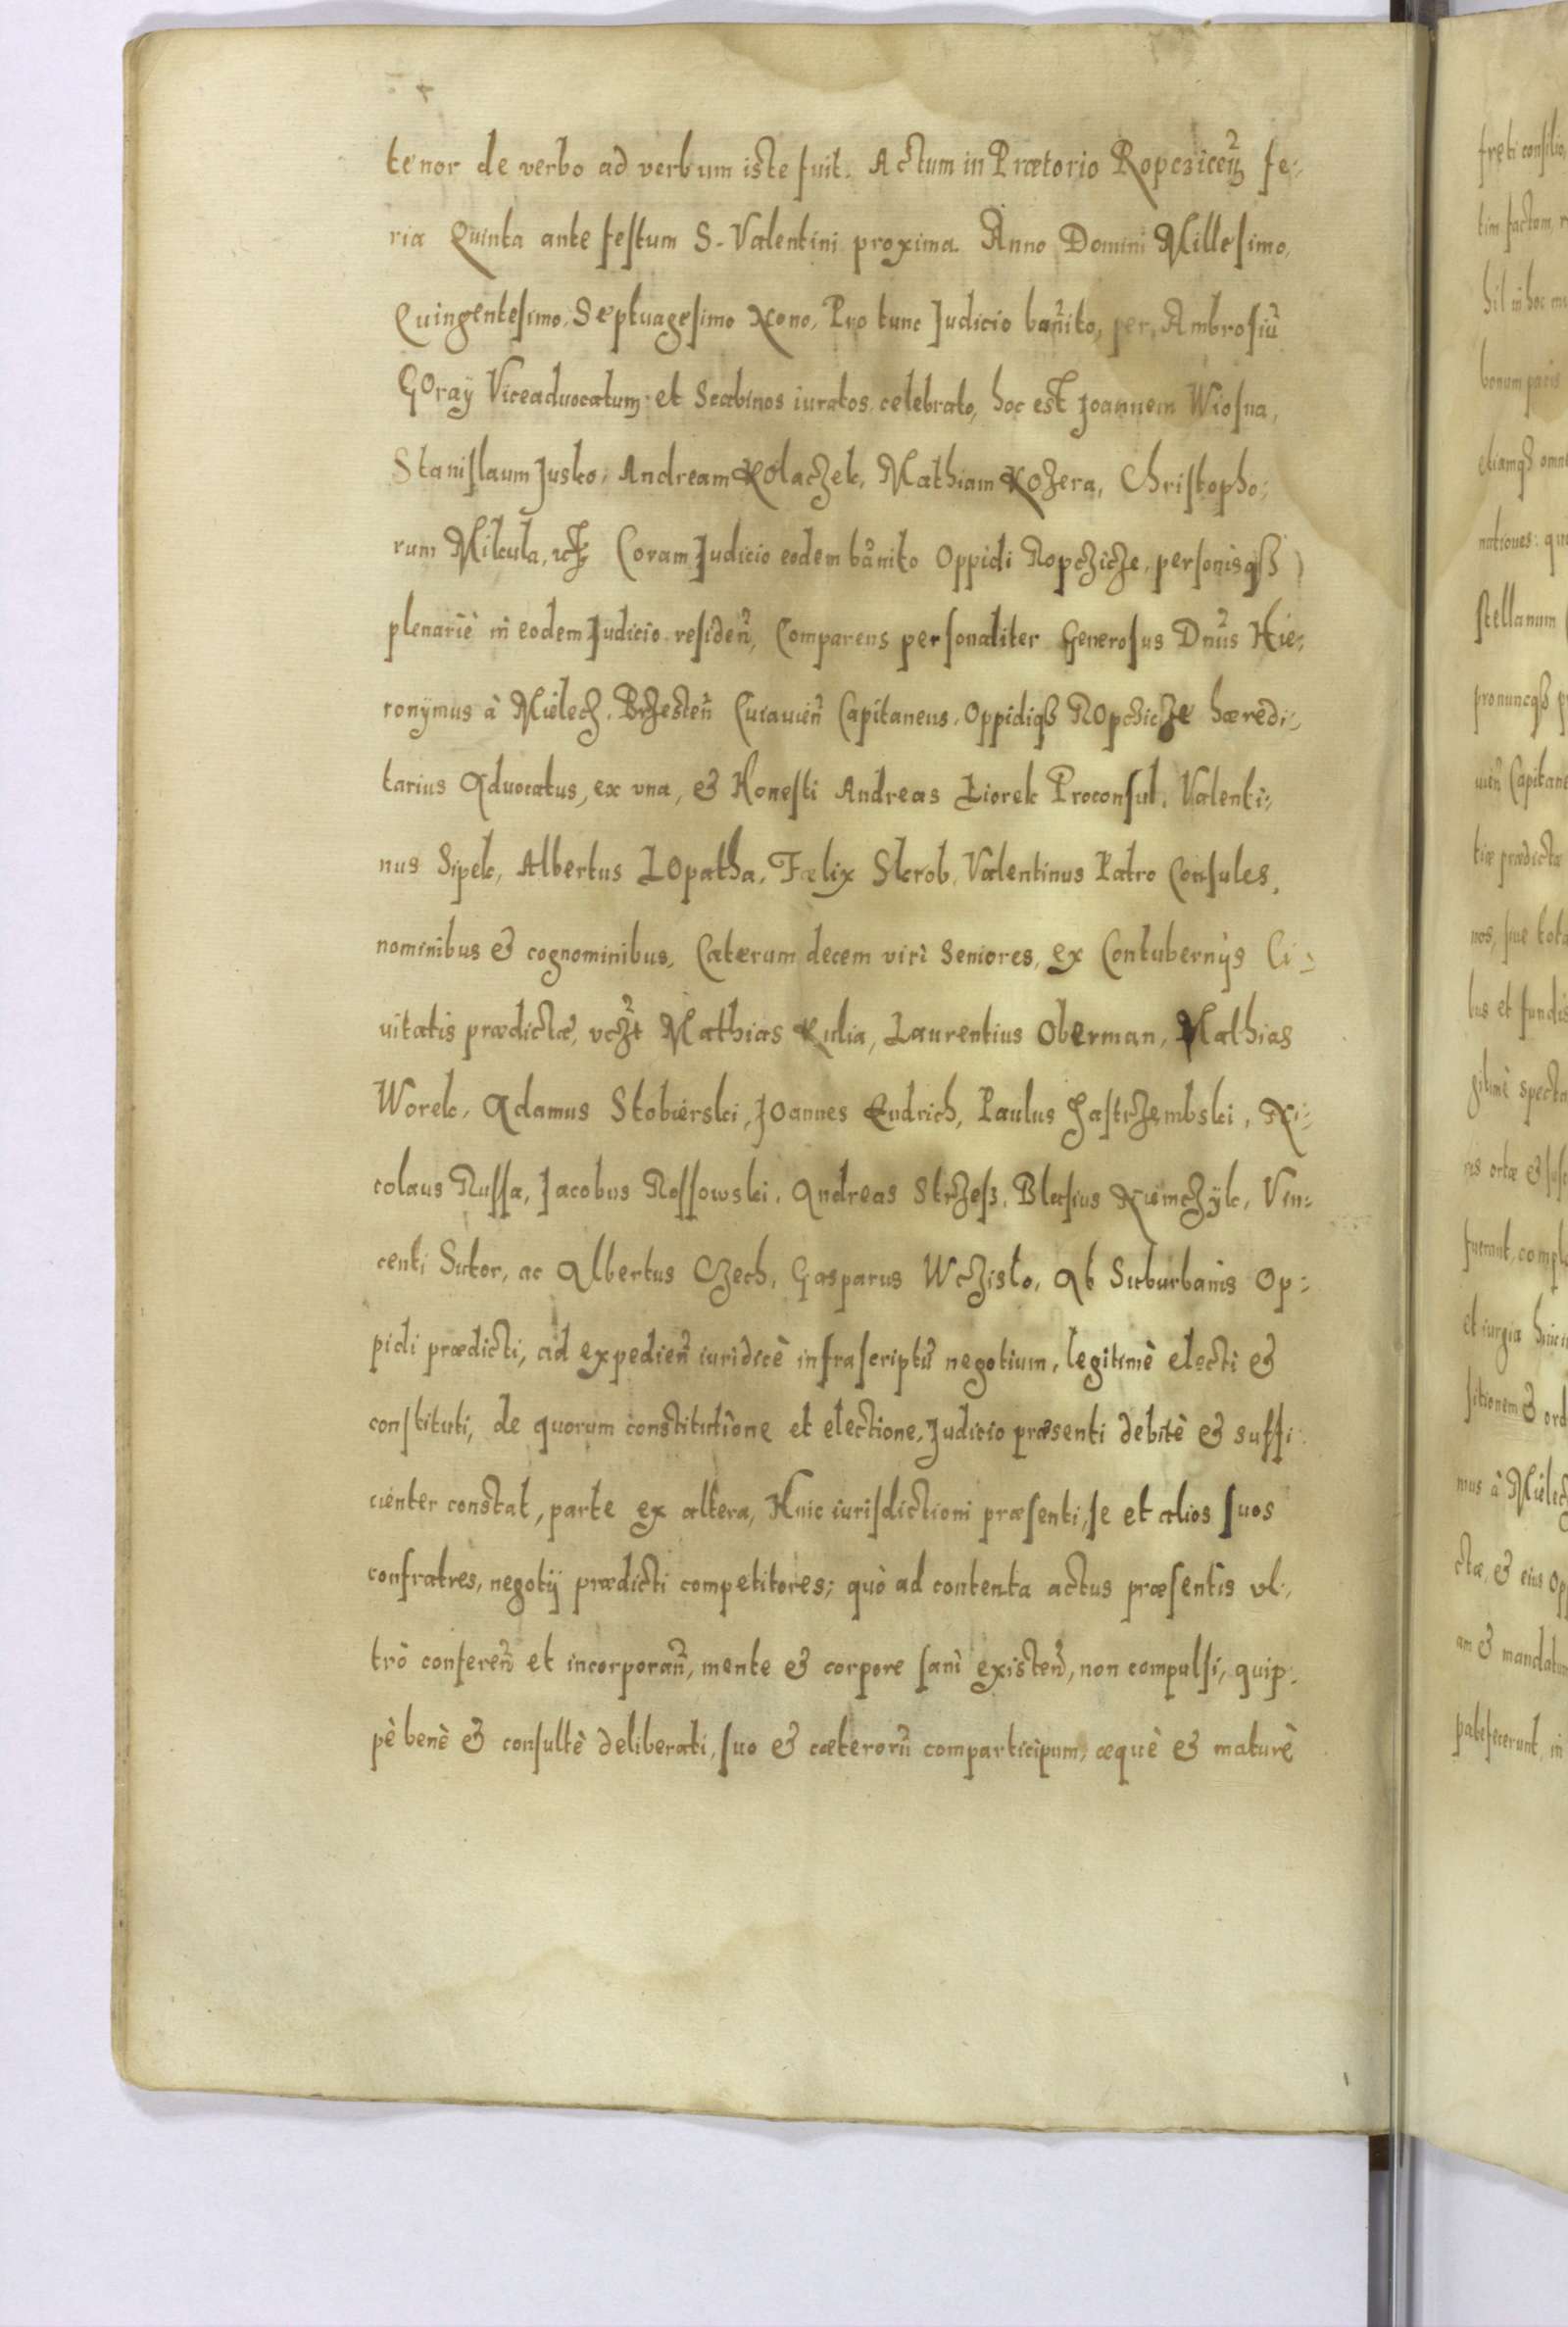 tenor de verbo ad verbum iste fuit. Actum in Prætorio Ropcziceñ fe:
ria Quinta ante festum S. Valentini proxima. Anno Domini Millesimo,
Quingentesimo, Septuagesimo Nono, Pro tunc Judicio bañito, per, Ambrosiũ
Goraÿ Viceaduocatum et Scabinos iuratos celebrato, hoc est Joannem Wiosna,
Stanislaum Jusko, Andream Kolaczek, Mathiam Kozera, Christopho:
rum Mikula, Coram Judicio eodem bãnito Oppidi Ropczicze, personisqß
plenariè in eodem Judicio resideñ, Comparens personaliter Generosus Dnũs Hie:
ronÿmus à Mielecz, Brzesteñ Cuiauieñ Capitaneus, Oppidiqß Ropczicze hæredi:
tarius Aduocatus, ex vna, & Honesti Andreas Liorek Proconsul, Valenti:
nus Sipek, Albertus Lopatha, Fælix Skrob, Valentinus Patro Consules,
nominibus & cognominibus, Cæterum decem viri Seniores, ex Contubernijs Ci:
uitatis prædictæ, vczt Mathias Kulia, Laurentius Oberman, Mathias
Worek, Adamus Stobierski, Joannes Endrich, Paulus Jastrzembski, Ni:
colaus Russa, Jacobus Rossowski, Andreas Strzeß, Blasius Niemczÿk, Vin:
centi Sutor, ac Albertus Czech, Gasparus Wczisło, Ab Suburbanis Op:
pidi prædicti, ad expedieñ iuridicè infrascriptũ negotium, legitimè electi &
constituti, de quorum constitutione et electione, Judicio præsenti debitè & suffi:
cienter constat, parte ex altera, Huic iurisdictioni præsenti, se et alios suos
confratres, negotij prædicti competitores; quò ad contenta actus præsentis vl:
trò confereñ et incorporañ, mente & corpore sani existeñ, non compulsi, quip:
pè benè & consultè deliberati, suo & cæterorũ comparticipum, æquè & maturè
freti consilio,
tim factam,
hil in hoc
bonum pacis
etiamqß
nationes:
stellanum
pronuncqß
uieñ Capitane
tiæ prædictæ
nos, siue tota
bus et fundis
gitimè specta
ris ortæ &
fuerant, comple
et iurgia hinc in
sitionem & ord
mus à Mielecz
ctæ, & eius Op
am & mandatum
patefecerunt, in